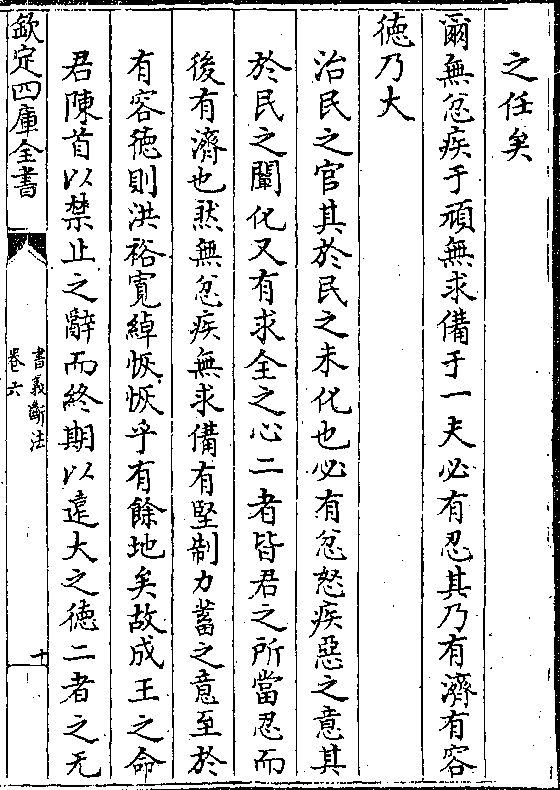 之任矣
爾無忿疾于頑無求備于一夫必有忍其乃有濟有容
徳乃大
治民之官其於民之未化也必有忿怒疾惡之意其
於民之闡化又有求全之心二者皆君之所當忍而
後有濟也然無忿疾無求備有堅制力蓄之意至於
有容徳則洪裕寛綽恢恢乎有餘地矣故成王之命
君陳首以禁止之辭而終期以遠大之徳二者之无
欽定四庫全書
書義斷法
卷六
十